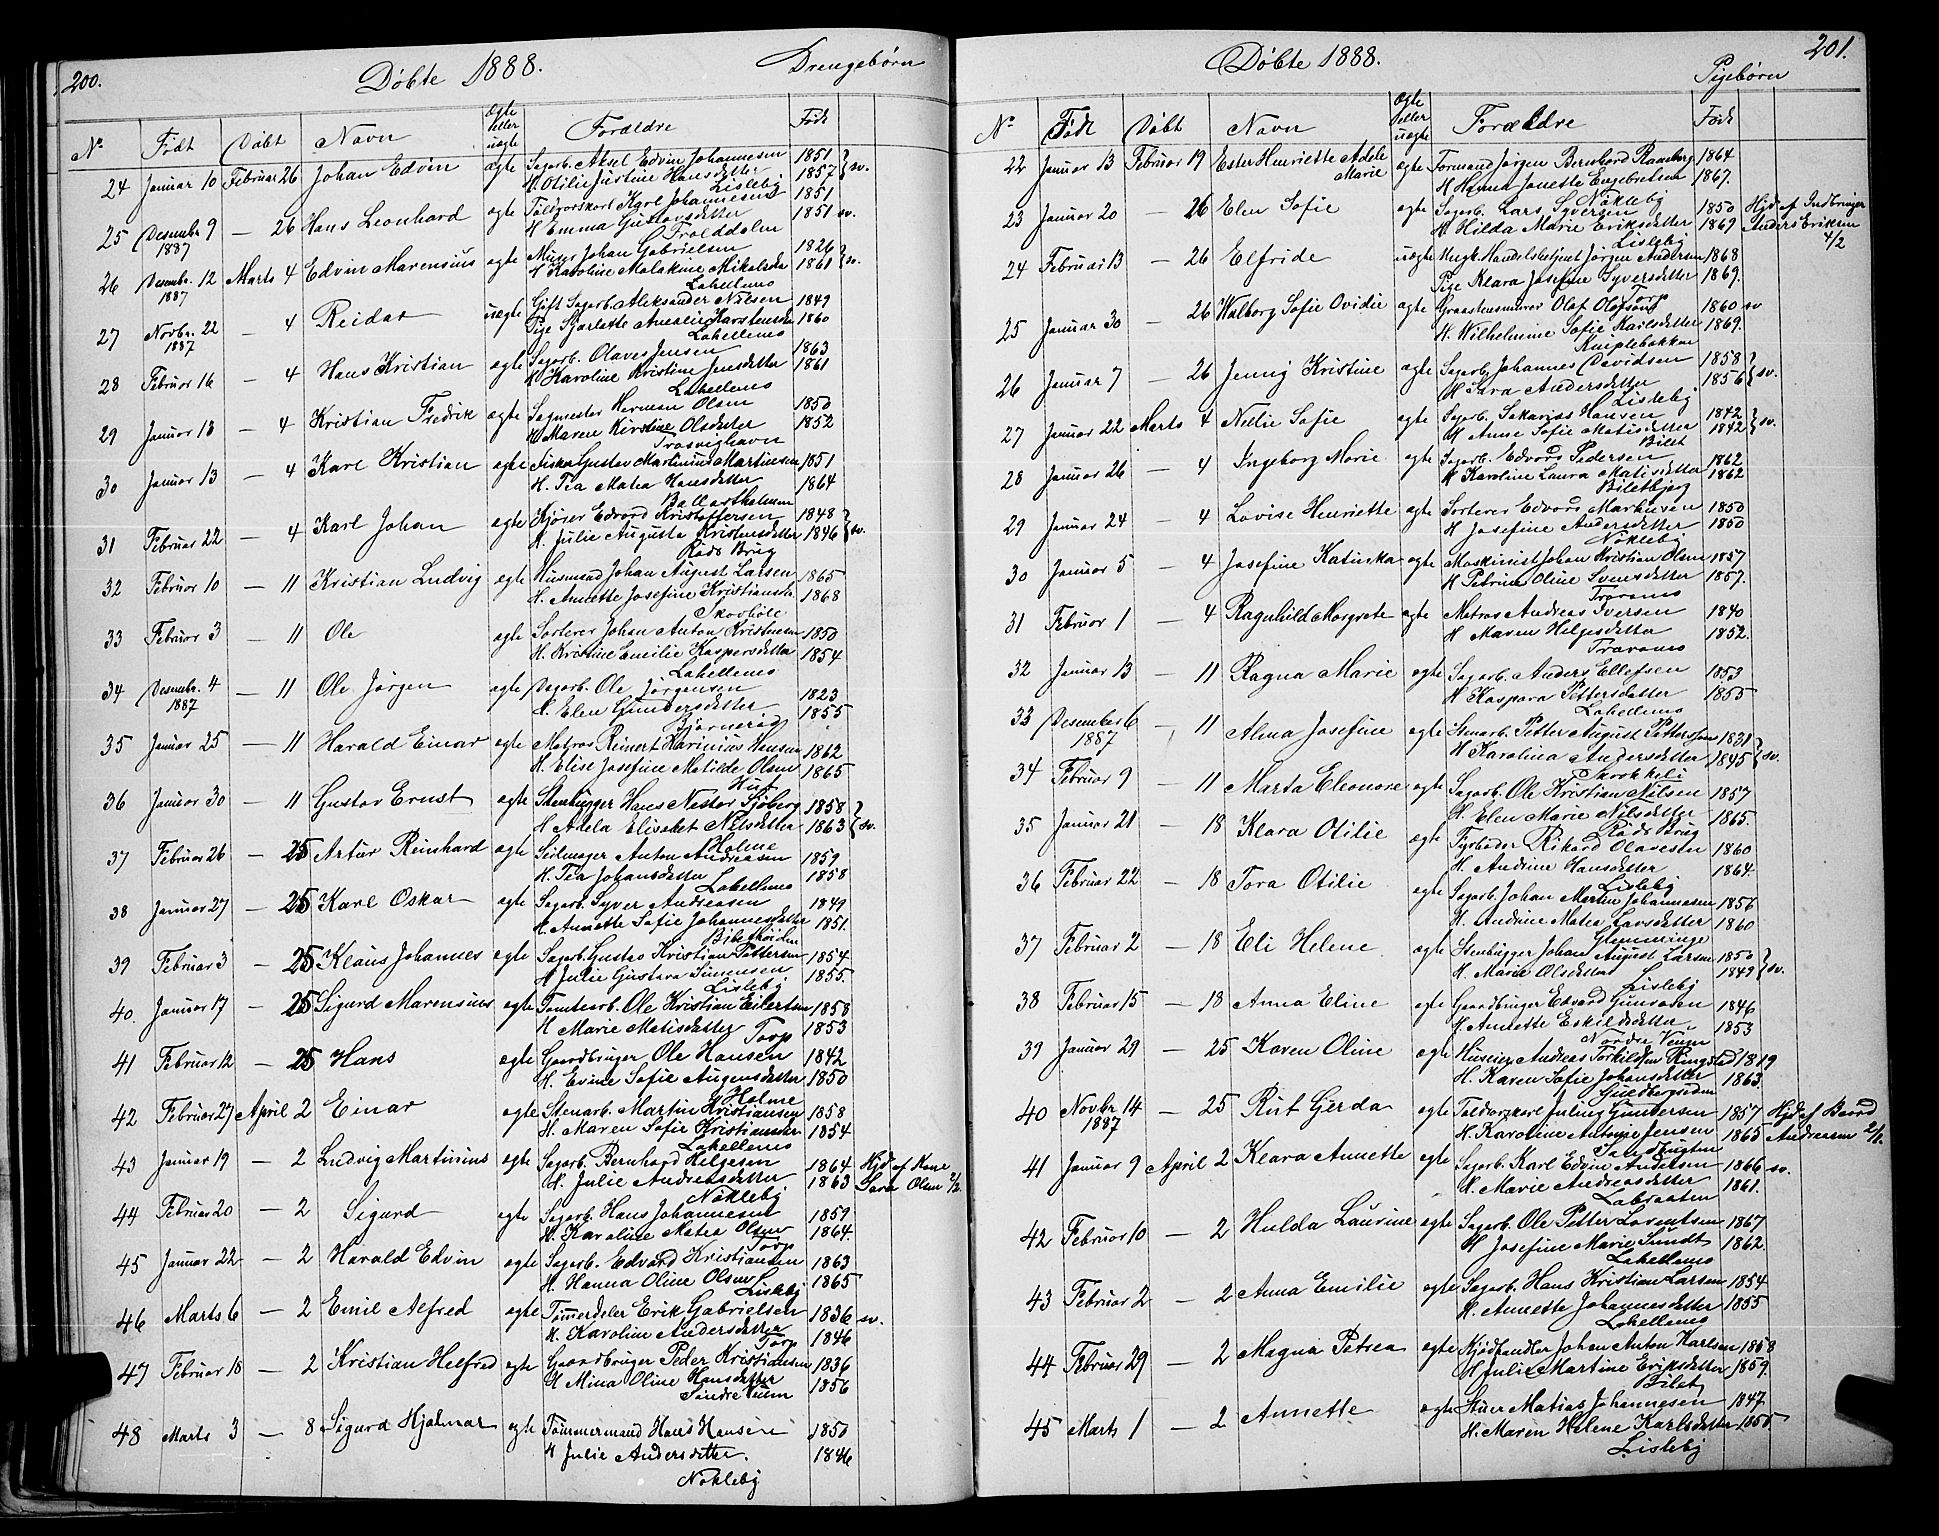 200.
Døbte 1888.
Drengebørn
Ægte eller uægte
N° Født Døbt Navn Forældre Født
24 Januar 10 Februar 26 Johan Edvin ægte Sagarb. Aksel Edvin Johannesen 1851 } sv.
H. Otilie Justine Hansdatter 1857
Lisleby
25 Desember 9 1887 — 26 Hans Leonhard ægte Toldvorskarl Karl Johannesen 1851
H Emma Gustavsdatter 1851 sv.
Trolddalen
26 Desembr. 12 1887 Marts 4 Edvin Marensius ægte Murer Johan Gabrielsen 1826 } sv.
H Karoline Malakine Mikalsda 1861
Lahellemo
27 Novbr. 22 1887 — 4 Reidar uægte Gift Sagarb. Aleksander Nilsen 1849
Pige Sjarlotte Amalie Karstensda 1860
Lahellemo
28 Februar 16 — 4 Hans Kristian ægte Sagarb. Olaves Jensen 1863
H Karoline Kristine Jensdatter 1861
Lahellemo
29 Januar 18 — 4 Kristian Fredrik ægte Sagmester Herman Olsen 1850
H Maren Kirstine Olsdatter 1852
Trosvighavn
30 Januar 13 — 4 Karl Kristian ægte Fisker Gustav Martinius Martinsen 1851
H. Tea Matea Hansdatter 1864
31 Februar 22 — 4 Karl Johan ægte Kjører Edvard Kristoffersen 1848 } sv.
H. Julie Augusta Kristensdatter 1846
Røds Brug
32 Februar 10 — 11 Kristian Ludvig ægte Husmand Johan August Larsen 1865
H. Annette Josefine Kristiansda 1868
33 Februar 3 — 11 Ole ægte Sorterer Johan Anton Kristensen 1850
H. Kristine Emilie Kaspersdatter 1854
Lahellemo
34 Desembr. 4 1887 — 11 Ole Jørgen ægte Dagarb. Ole Jørgensen 1823
H. Elen Gundersdatter 1855
Bjørnerød
35 Januar 25 — 11 Harald Einar ægte Matros Reinert Harinius Hansen 1862
H. Elise Josefine Matilde Olsen 1865
36 Januar 30 — 11 Gustav Ernst ægte Stenhugger Hans Nestor Sjøberg 1858 } sv.
H Adela Elisabet Nilsdatter 1863
Holme
37 Februar 26 — 25 Artur Reinhard ægte Seilmager Anton Andreasen 1859
H. Tea Johansdatter 1858
Lahellemo
38 Januar 27 — 25 Karl Oskar ægte Sagarb. Syver Andreasen 1849
H. Annette Sofie Johannesdatter 1851.
39 Februar 3 — 25 Klaus Johannes ægte Sagarb. Gustav Kristian Pettersen 1854
H Julie Gustava Simensen 1855.
Lisleby
40. Januar 17 — 25 Sigurd Marensius ægte Tomtearb. Ole Kristian Eilertsen 1858
H Marie Matisdatter 1853
Torp
41 Februar 12 — 25 Hans ægte Gaardbruger Ole Hansen 1842
H. Evine Sofie Augensdatter 1850
Holme
42 Februar 27 April 2 Einar ægte Stenarb. Martin Kristiansen 1858
H. Maren Sofie Kristiansdatter 1854
Lahellemo
43 Januar 19 — 2 Ludvig Martinius ægte Sagarb. Bernhard Helgesen 1864 Hjd af Kone
H. Julie Andreasdatter 1863 Sara Olsen 2/2.
Nøkleby
44 Februar 20 — 2 Sigurd ægte Sagarb. Hans Johannesen 1859
H. Karoline Matea Olsen 1864.
Torp
45 Januar 22 — 2 Harald Edvin ægte Sagarb. Edvard Kristiansen 1863
H. Hanna Oline Olsen 1865
Lisleby
46 Marts 6 — 2 Emil Alfred ægte Tømmerdeler Erik Gabrielsen 1836 sv.
H. Karoline Andersdatter 1846
Torp
47 Februar 18 — 2 Kristian Helfred ægte Gaardbruger Peder Kristiansen 1836
H Mina Oline Hansdatter 1856
Søndre Veum
48 Marts 3 — 8 Sigurd Hjalmar ægte Tømmermand Hans Hansen 1850
H Julie Andersdatter. 1846
Nøkleby
201.
Døbte 1888.
Pigebørn
Ægte eller uægte
N° Født Døbt Navn Forældre Født
22 Januar 13 Februar 19 Ester Henriette Adele Marie ægte Formand Jørgen Bernhard Ramberg 1864
H Hanna Janette Engebretsen 1867.
Nøkleby
23 Januar 20 — 26 Elen Sofie ægte Sagarb. Lars Syversen 1850 Hjd af Indbringer
H. Hilda Marie Eriksdatter 1869 Anders Eriksen 4/2
Lisleby
24 Februar 13 — 26 Elfride uægte Ungk. Handelsbetjent Jørgen Andersen 1868
Pige Klara Josefine Syversdatter 1869.
Torp
25 Januar 30 — 26 Walborg Sofie Ovidie ægte Graastensmurer Olaf Olofson 1860 sv
H. Wilhelmine Sofie Karlsdatter 1869.
Kniplebakken
26 Januar 7 — 26 Jenny Kristine ægte Sagarb. Johannes Davidsen 1858 } sv.
H Sara Andersdatter 1856
Lisleby
27 Januar 22 Marts 4 Nellie Sofie ægte Sagarb. Sakarias Hansen 1842 } sv.
H Anne Sofie Matisdatter 1842
Bilet
28 Januar 26 — 4 Ingeborg Marie ægte Sagarb. Edvard Pedersen 1862
H Karoline Laura Matisdatter 1862
Biletbjerg
29 Januar 24 — 4 Lovise Henriette ægte Sorterer Edvard Markusen 1850
H Josefine Andersdatter 1850
Nøkleby
30 Januar 5 — 4 Josefine Katinka ægte Maskinist Johan Kristian Olsen 1857
H Petrine Oline Svensdatter 1857.
Traramo
31 Februar 1 — 4 Ragnhild Margrete ægte Matros Andreas Iversen 1840
H Maren Helgesdatter 1852.
Traramo
32 Januar 13 — 11 Ragna Marie ægte Sagarb. Anders Ellefsen 1853
H Kaspara Pettersdatter 1855
Lahellemo
33 Desember 6 1887 — 11 Alma Josefine ægte Stenarb. Petter August Pettersson 1831 } sv.
H Karolina Andersdatter 1845
34 Februar 9 — 11 Marta Eleonore ægte Sagarb. Ole Kristian Nilsen 1857
H. Elen Marie Nilsdatter 1865.
Røds Brug
35 Januar 21 — 18 Klara Otilie ægte Fyrbøder Rikard Olavesen 1860
H. Andrine Hansdatter 1864
Lisleby
36 Februar 22 — 18 Tora Otilie ægte Sagarb. Johan Martin Johannesen 1856
H. Andrine Matea Larsdatter 1860
Glemminge
37 Februar 2 — 18 Eli Helene ægte Stenhugger Johan August Larsen 1850 } sv.
H. Marie Olsdatter 1849
Lisleby
38 Februar 15 — 18 Anna Eline ægte Gaardbruger Edvard Gunersen 1846
H Annette Eskildsdatter 1853
Nordre Veum
39 Januar 29 — 25 Karen Oline ægte Huseier Andreas Torkildsen Ringstad 1819
H. Karen Sofie Johansdatter 1863
40 Novbr 14 1887 — 25 Rut Gerda ægte Toldvorskarl Julius Gundersen 1857 Hjd af Baard
H. Karoline Antonie Jensen 1865 Andreasen 2/2
41 Januar 9 April 2 Klara Annette ægte Sagarb. Karl Edvin Andersen 1866 sv.
H. Marie Andreasdatter 1861.
Labraaten
42 Februar 10 — 2 Hulda Laurine ægte Sagarb. Ole Petter Lorentsen 1867
H Josefine Marie Sundt 1862.
Lahellemo
43 Februar 2 — 2 Anna Emilie ægte Sagarb. Hans Kristian Larsen 1854
H. Annette Johannesdatter 1855
Lahellemo
44 Februar 29 — 2 Magna Petrea ægte Kjødhandler Johan Anton Karlsen 1858
H Julie Martine Eriksdatter 1859.
Bilet
45 Marts 1 — 2 Annette ægte Stuer Matias Johannesen 1847.
H. Maren Helene Karlsdatter 1855
Lisleby